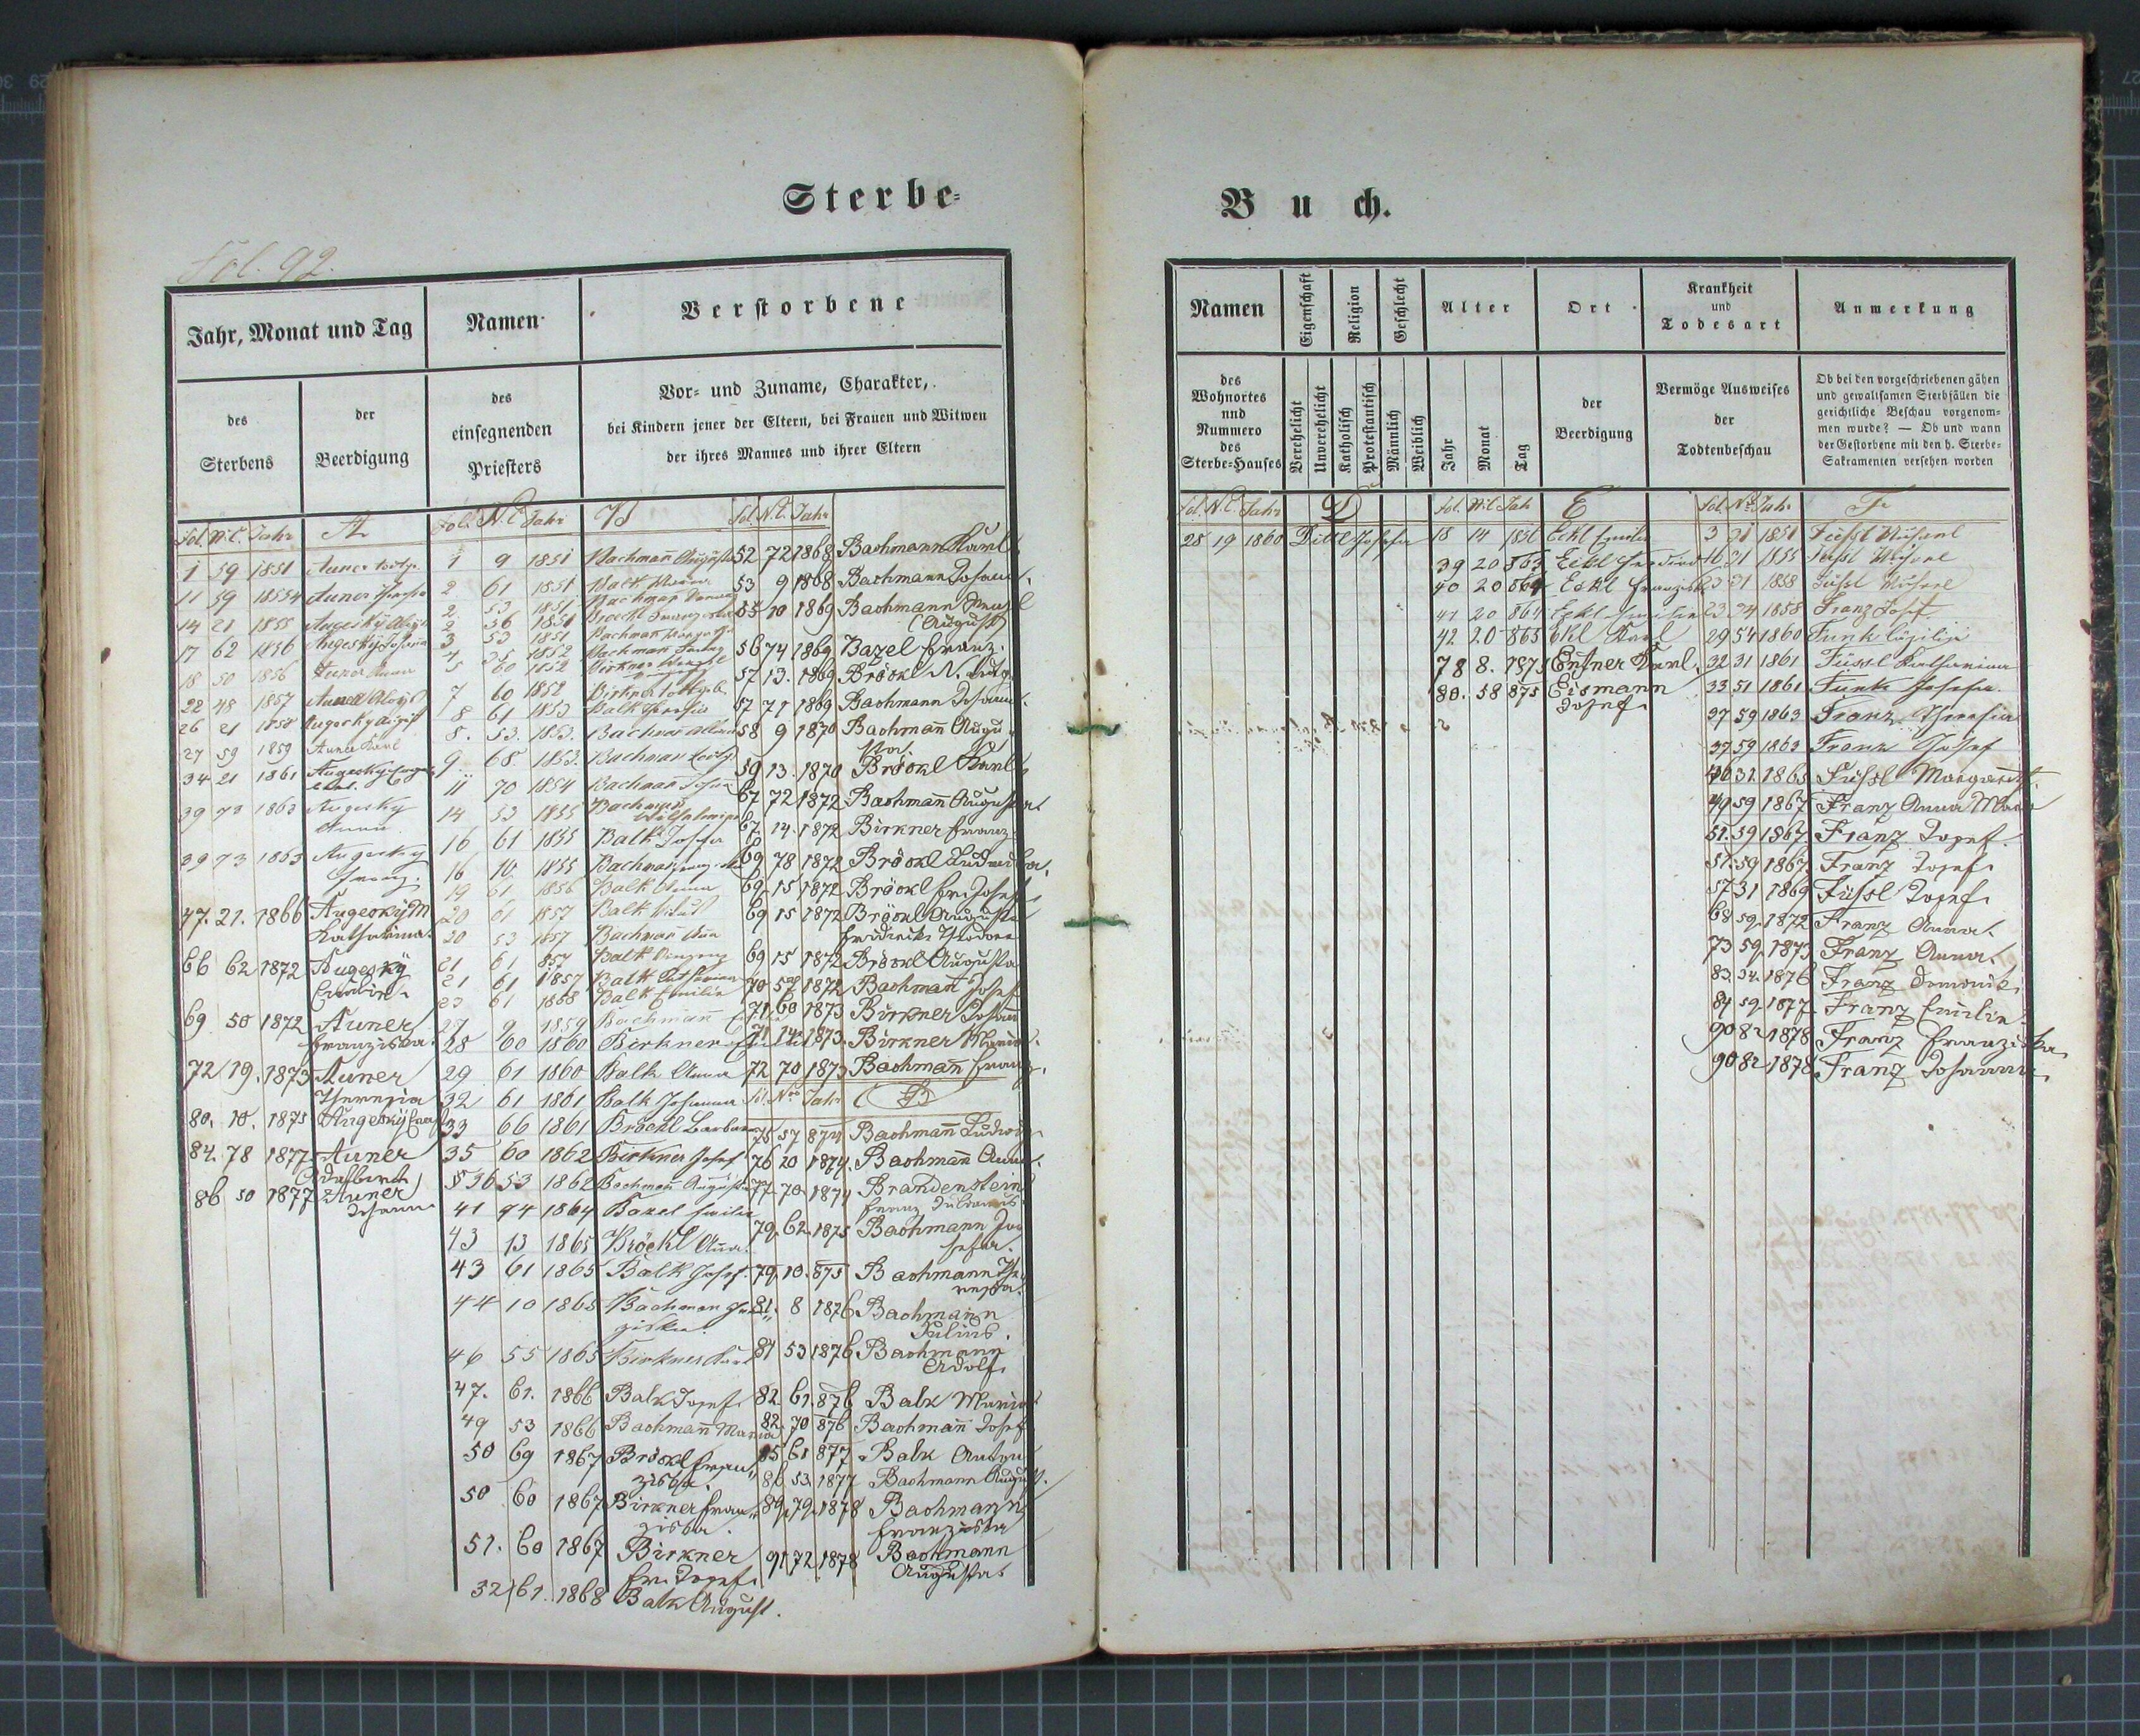 Sterbe-
Fol. 92.
Jahr, Monat und Tag
Namen
Verstorbene
des
Sterbens
der
Beerdigung
des
einsegnenden
Priesters
Vor- und Zuname, Charakter,
bei Kindern jener der Eltern, bei Frauen und Witwen
der ihres Mannes und ihrer Eltern
Fol. N.C. Jahr A
1 59 1851 Auner
11 59 Auner
14 21 1855 Augesky
17 62 1856 Augesky Johann
18 50 1856 Auner Anna
22 48 1857 Aloys
26 21 1858 Augesky
27 59 1859 Auner Karl
34 21 1861 Augesky
39 73 1863 Augesky
Anna
39 73 1863 Augesky
Franz.
47. 21. 1866 Augesky M
Katharina.
66 62 1872 Augesky
Emilie
69 50 1872 Auner
Franziska.
72 19. 1873 Auner
Theresia
80. 10. 1875 Augesky
84. 78 1877 Auner
Adalbert
86 50 1877 Auner
Johann
Fol. N.C. Jahr B
1 9 1851 Bachmañ Augusta
2 61 1851 Balk
2 53 1851 Bachman
2 56 1851
3 53 1851 Bachman
1852 Bachman
5 60 1852 Birkner
7 60 1852 Birkner
8 61 1853 Balk
8. 53. 1853. Bachman
9 68 1853. Bachman
11 70 1854 Bachmañ
14 53 1855 Bachmann
Wilhelmine
16 61 1855 Balk Josefa
16 10 1855 Bachman
19 61 1856 Balk Anna
20 61 1857 Balk
20 53 1857 Bachmañ
21 61 857 Balk
21 61 1857 Balk Katharina
23 61 1858 Balk Emilie
27 9 1859 Bachmann
28 60 1860 Birkner
29 61 1860 Balk Anna
32 61 1861 Balk Johanna
33 66 1861 Bröckl Barbara
35 60 1862 Birkner Josef
36 53 1862 Bachmañ Augusta
41 74 1864 Bazel Emilie
43 13 1865 Bröckl Anna.
43 61 1865 Balk Josef.
44 10 1865 Bachman Fran
ziska.
46 55 1865 Birkner Karl
47. 61. 1866 Balk Josef
49 53 1866 Bachmañ Maria
50 69 1867 Bröckl Fran
ziska.
50 60 1867 Birkner Fran
ziska.
51. 60 1867 Birkner
Fr. Josef.
52 61. 1868 Balk August.
Fol. N.C. Jahr
52 72 1868 Bachmann Karl
53 9 1868 Bachmann Johann.
55 10 1869 Bachmann
(August)
56 74 1869 Bazel Franz.
57 13. 1869 Bröckl N.
57 71 1869 Bachmann Johann
58 9 1870 Bachmañ Augu
sta.
59 13. 1870 Bröckl Karl
67 72 1872 Bachmañ Augusta
67. 14. 1872 Birkner Franz
69 78 1872 Bröckl Ludmilla.
69. 15 1872 Bröckl Fr. Josef
69 15 1872 Bröckl Augusta
Friederike Theodora
69 15 1872 Bröckl Augusta
70 1872 Bachman Josef
71 60 1873 Birkner Johann
71 14 1873. Birkner Maria.
72 70 1873 Bachmañ Franz.
Fol. Nro Jahr B
75 57 874 Bachmañ Ludwig
76 20 1874. Bachmañ Anna.
77 70 1874 Brandenstein
Franz
79. 62. 1875 Bachmann Jo
sefa.
79. 10. 875 Bachmann The
resia.
81. 8 1876 Bachmann
Julius.
81 53 1876 Bachmann
Adolf
82. 61. 876 Balk Maria
82. 70 876 Bachmañ Josef
85 61 877 Balk Anton
86 53. 1877 Bachmann August.
89. 79. 1878 Bachmann
Franziska
91 72 1878 Bachmann
Augusta
Buch.
Namen
Eigenschaft
Religion
Geschlecht
Alter
Ort
Krankheit
und
Todesart
Anmerkung
des
Wohnortes
und
Nummero
des
Sterbe-Hauses
Verehelicht
Unverehelicht
Katholisch
Protestantisch
Männlich
Weiblich
Jahr
Monat
Tag
der
Beerdigung
Vermöge Ausweises
der
Todtenbeschau
Ob bei den vorgeschriebenen gähen
und gewaltsamen Sterbfällen die
gerichtliche Beschau vorgenom-
men wurde? — Ob und wann
der Gestorbene mit den h. Sterbe-
Sakramenten versehen worden
Fol. N.C. Jahr D
28 19 1860 Dittl Josefa
Fol. N.C. Jahr E
18 14 1856 Eckl Emilie
39 20 863 Eckl
40 20 864 Eckl Franziska
41 20 864 Eckl
42 20 865 Ekl Karl
78 8. 1875 Entner Karl.
80. 58 875 Eismann
Josef
Fol. Nro Jahr F
3 31 1851 Füssl
16 31 1855 Füssl
23 31 1858 Füssl
23 74 1858 Franz Josef.
29 54 1860 Funk
32 31 1861 Füssl Katharina
33 51 1861 Funk Josefa.
37 59 1863 Franz Theresia
37 59 1863 Franz Josef
46 32 1865 Füssl Margareth
49 59 1867 Franz Anna Maria
51. 59 1867 Franz Josef.
51. 59 1867. Franz Josef
57 31 1869 Füssl Josef
68 59 1872 Franz Anna
73 59 1873 Franz Anna.
83. 34. 1876 Franz Dominik
84 59. 1877 Franz Emilie
90 82 1878 Franz Franziska
90 82 1878 Franz Johann